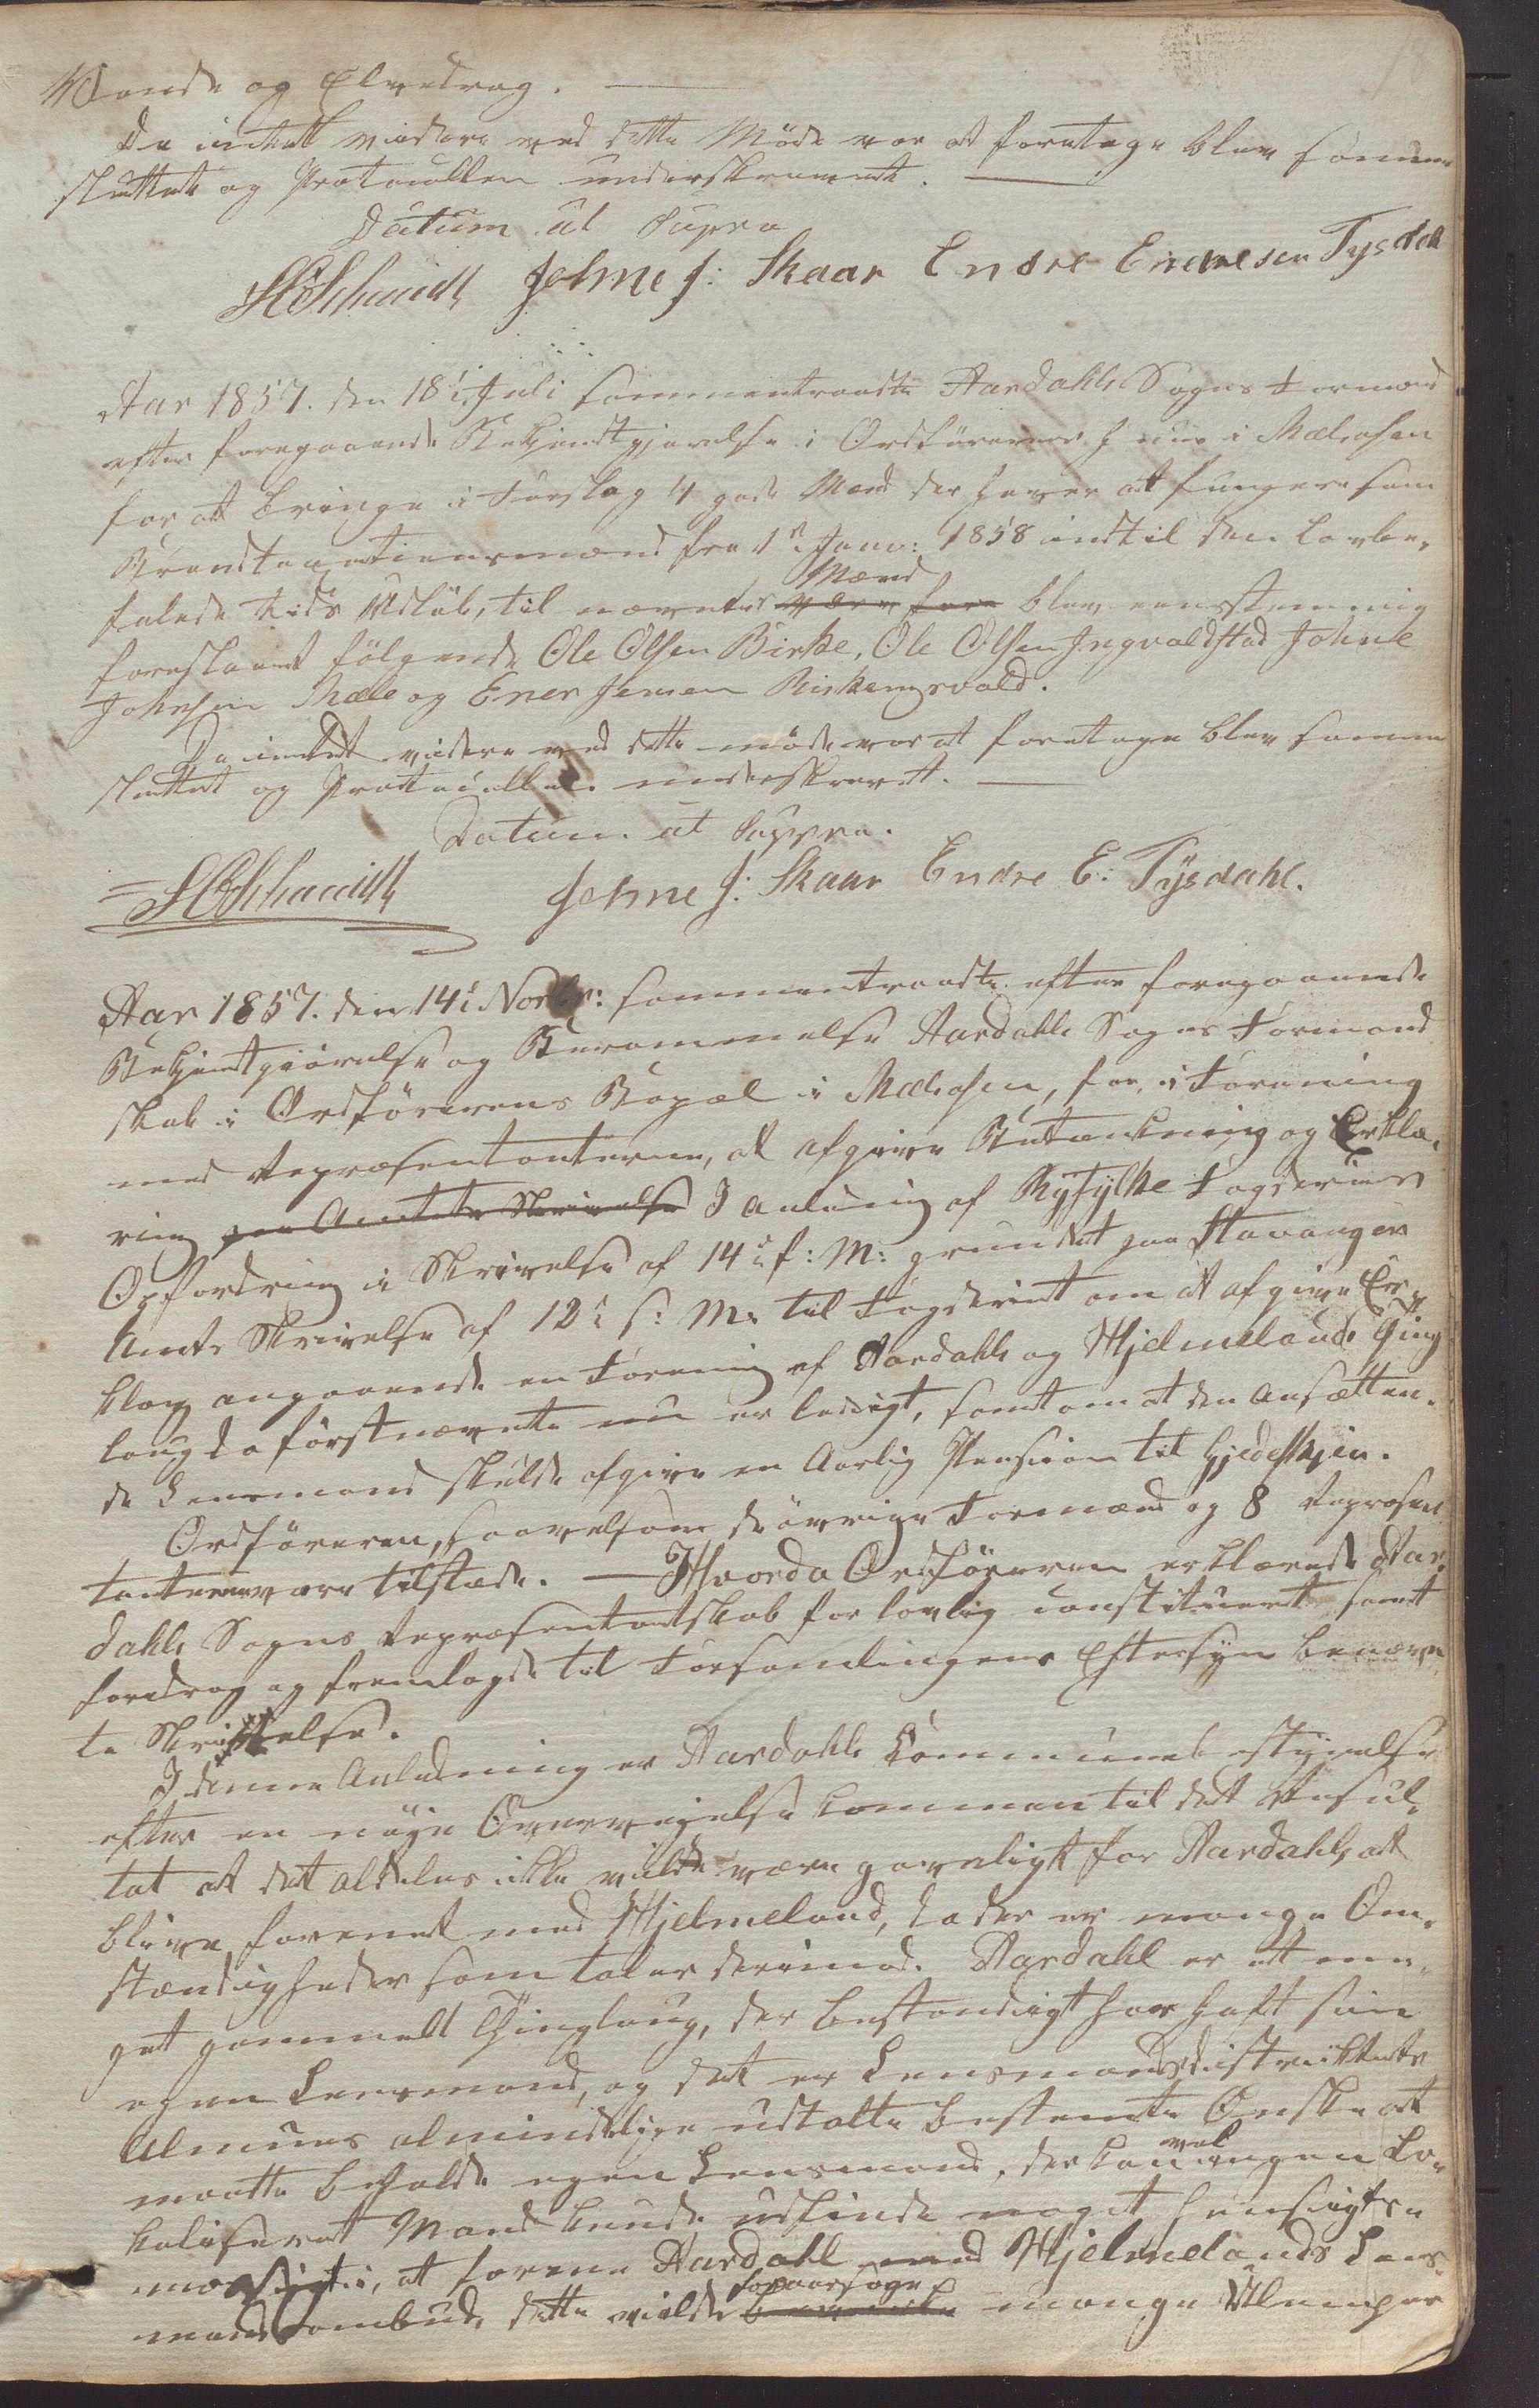 18
Vande og Elvedrag.
Da intet videre ved dette Møde var at foretage blev samme
sluttet og Protocollen underskrevet.
Datum ut Supra
HCSchmidt Johne J: Skaar Endre Endresen Tysdal
Aar 1857. den 18de Juli sammentraadte Aardahls Sogns Formænd
efter foregaaende Bekjendtgjørelse i Ordførerens Huus i Mælaasen
for at bringe i Forslag 4 gode Mænd der haver at fungere som
Brandtaxtionsmænd fra 1ste Janv: 1858 indtil den Lovbe-
falede Tids Udløb, til nævnte Mænd blev eenstemmig
foreslaaet følgende Ole Olsen Birke, Ole Olsen Ingvaldstad Johne
Johnsen Mæle og Ener Jensen Riskangsvold.
Da intet videre ved dette møde var at foretage blev samme
sluttet og Protocollen underskrevet.
Datum ut Suppra.
HCSchmidt Johne J: Skaar Endre E: Tysdahl.
Aar 1857. den 14de Novbr: sammentraadte efter foregaaende
Bekjentgiørelse og Berammelse Aardahls Sogns Formand
skab i Ordførerens Bopæl i Mælaasen, for i Forening
med Repræsentanterne, at afgive Betænkning og Erklæ-
ring paa Amtets Skrivelse I Anledning af Ryfylke Fogderies
Opfordring i Skrivelse af 14de f: M: grundet paa Stavanger
Amts Skrivelse af 12te s: M: til Fogderiet om at afgive Er-
klæring angaaende en Forening af Aardahls og Hjelmelands Thing
laug da førstnævnte nu er ledigt, samt om at den Ansætten-
de Lensmand skulde afgive en Aarlig Pension til Gjedeskjen.
Ordføreren, saavelsom de øvrige Formænd og 8 Repræsen
tanter vare tilstæde. — Hvorda Ordføreren erklærede Aar-
dahls Sogns Repræsentantskab for lovlig constitueret samt
foredrog og fremlagde til Forsamlingens Eftersyn benævn
te Skrivelse.
I denne Anledning er Aardahls Communebestyrelse
efter en nøye Overveyelse kommen til det Resul-
tat at det aldeles ikke vilde være gavnligt for Aardahl, at
blive forenet med Hjelmeland, da der er mange Om-
stændigheder som taler derimod. Aardahl er et me-
get gammelt Thinglaug, der bestandigt har haft sin
egen Lensmand, og det er Lensmandsdistriktets
Almues almindelige udtalte bestemte Ønske at
maatte beholde egen Lensmand, der kan vel ingen Lo-
kaliseret Mand kunde udfinde noget hensigts-
mæssigt i, at forene Aardahl med Hjelmelands Lens-
mandsombud, dette vilde foraarsage mange Ulemper